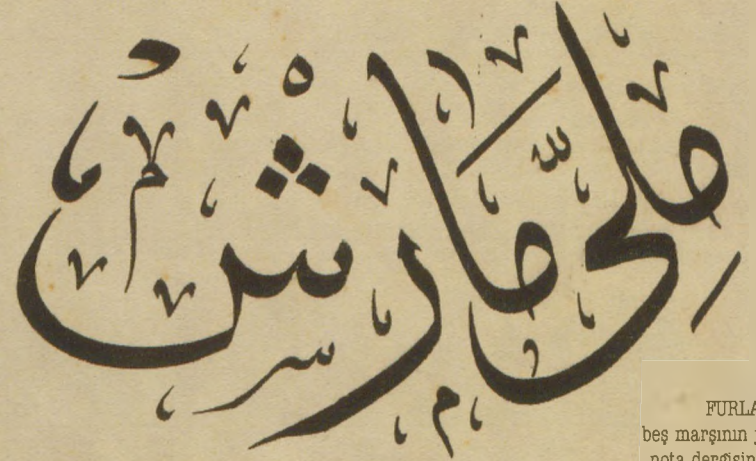 ملی مارش
FURLA
beş marşının
nota dergisin